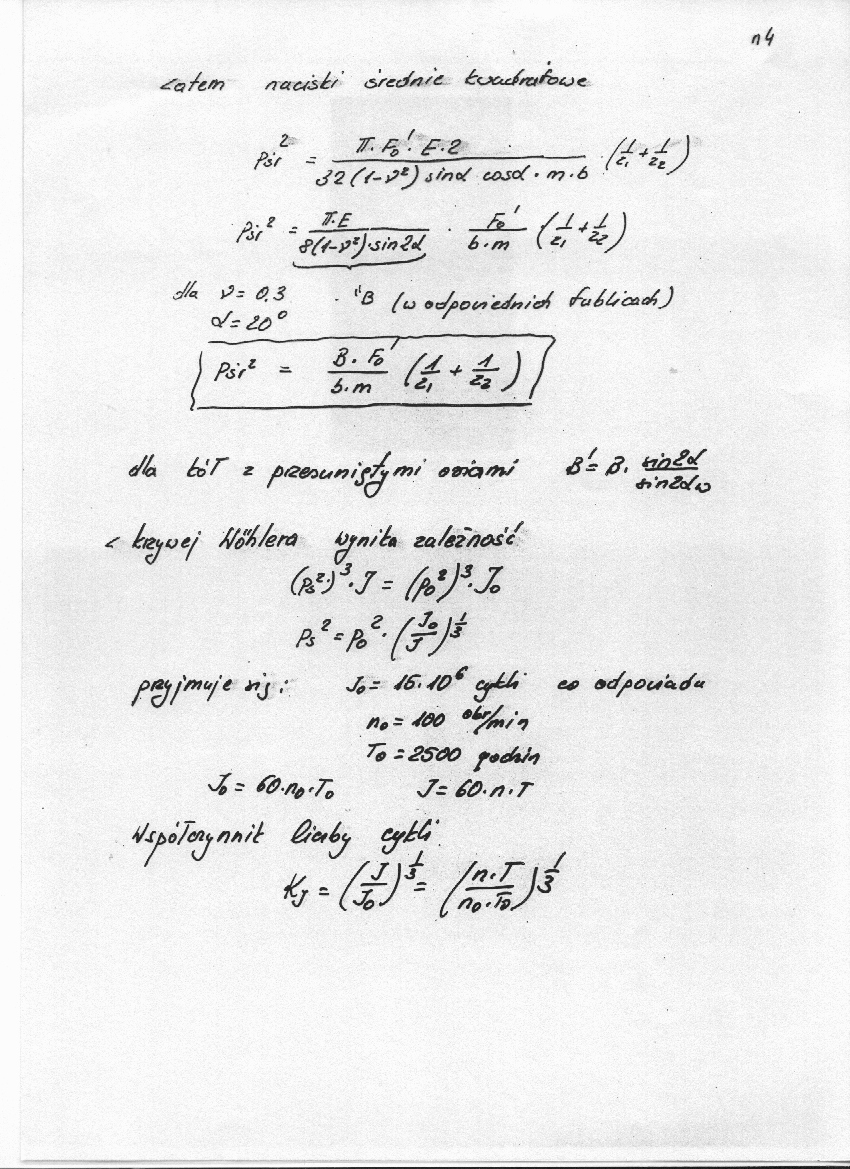 n4
Zatem naciski średnie kwadratowe
pśr² = π·F₀'·E·2 / 32(1-ν²) sinα cosα · m·b · (1/z₁ + 1/z₂)
pśr² = π·E / 8(1-ν²)·sin2α · F₀' / b·m (1/z₁ + 1/z₂)
dla ν = 0.3 "B (w odpowiednich tablicach)
α = 20°
pśr² = B·F₀' / b·m (1/z₁ + 1/z₂)
dla kół z przesuniętymi osiami B' = B · sin2α / sin2αw
Z krzywej Wöhlera wynika zależność
(ps²)³·J = (p₀²)³·J₀
ps² = p₀²·(J₀/J)^1/3
przyjmuje się: J₀ = 15·10⁶ cykli co odpowiada
n₀ = 100 obr/min
T₀ = 2500 godzin
J₀ = 60·n₀·T₀ J = 60·n·T
Współczynnik liczby cykli
KJ = (J/J₀)^1/3 = (n·T / n₀·T₀)^1/3